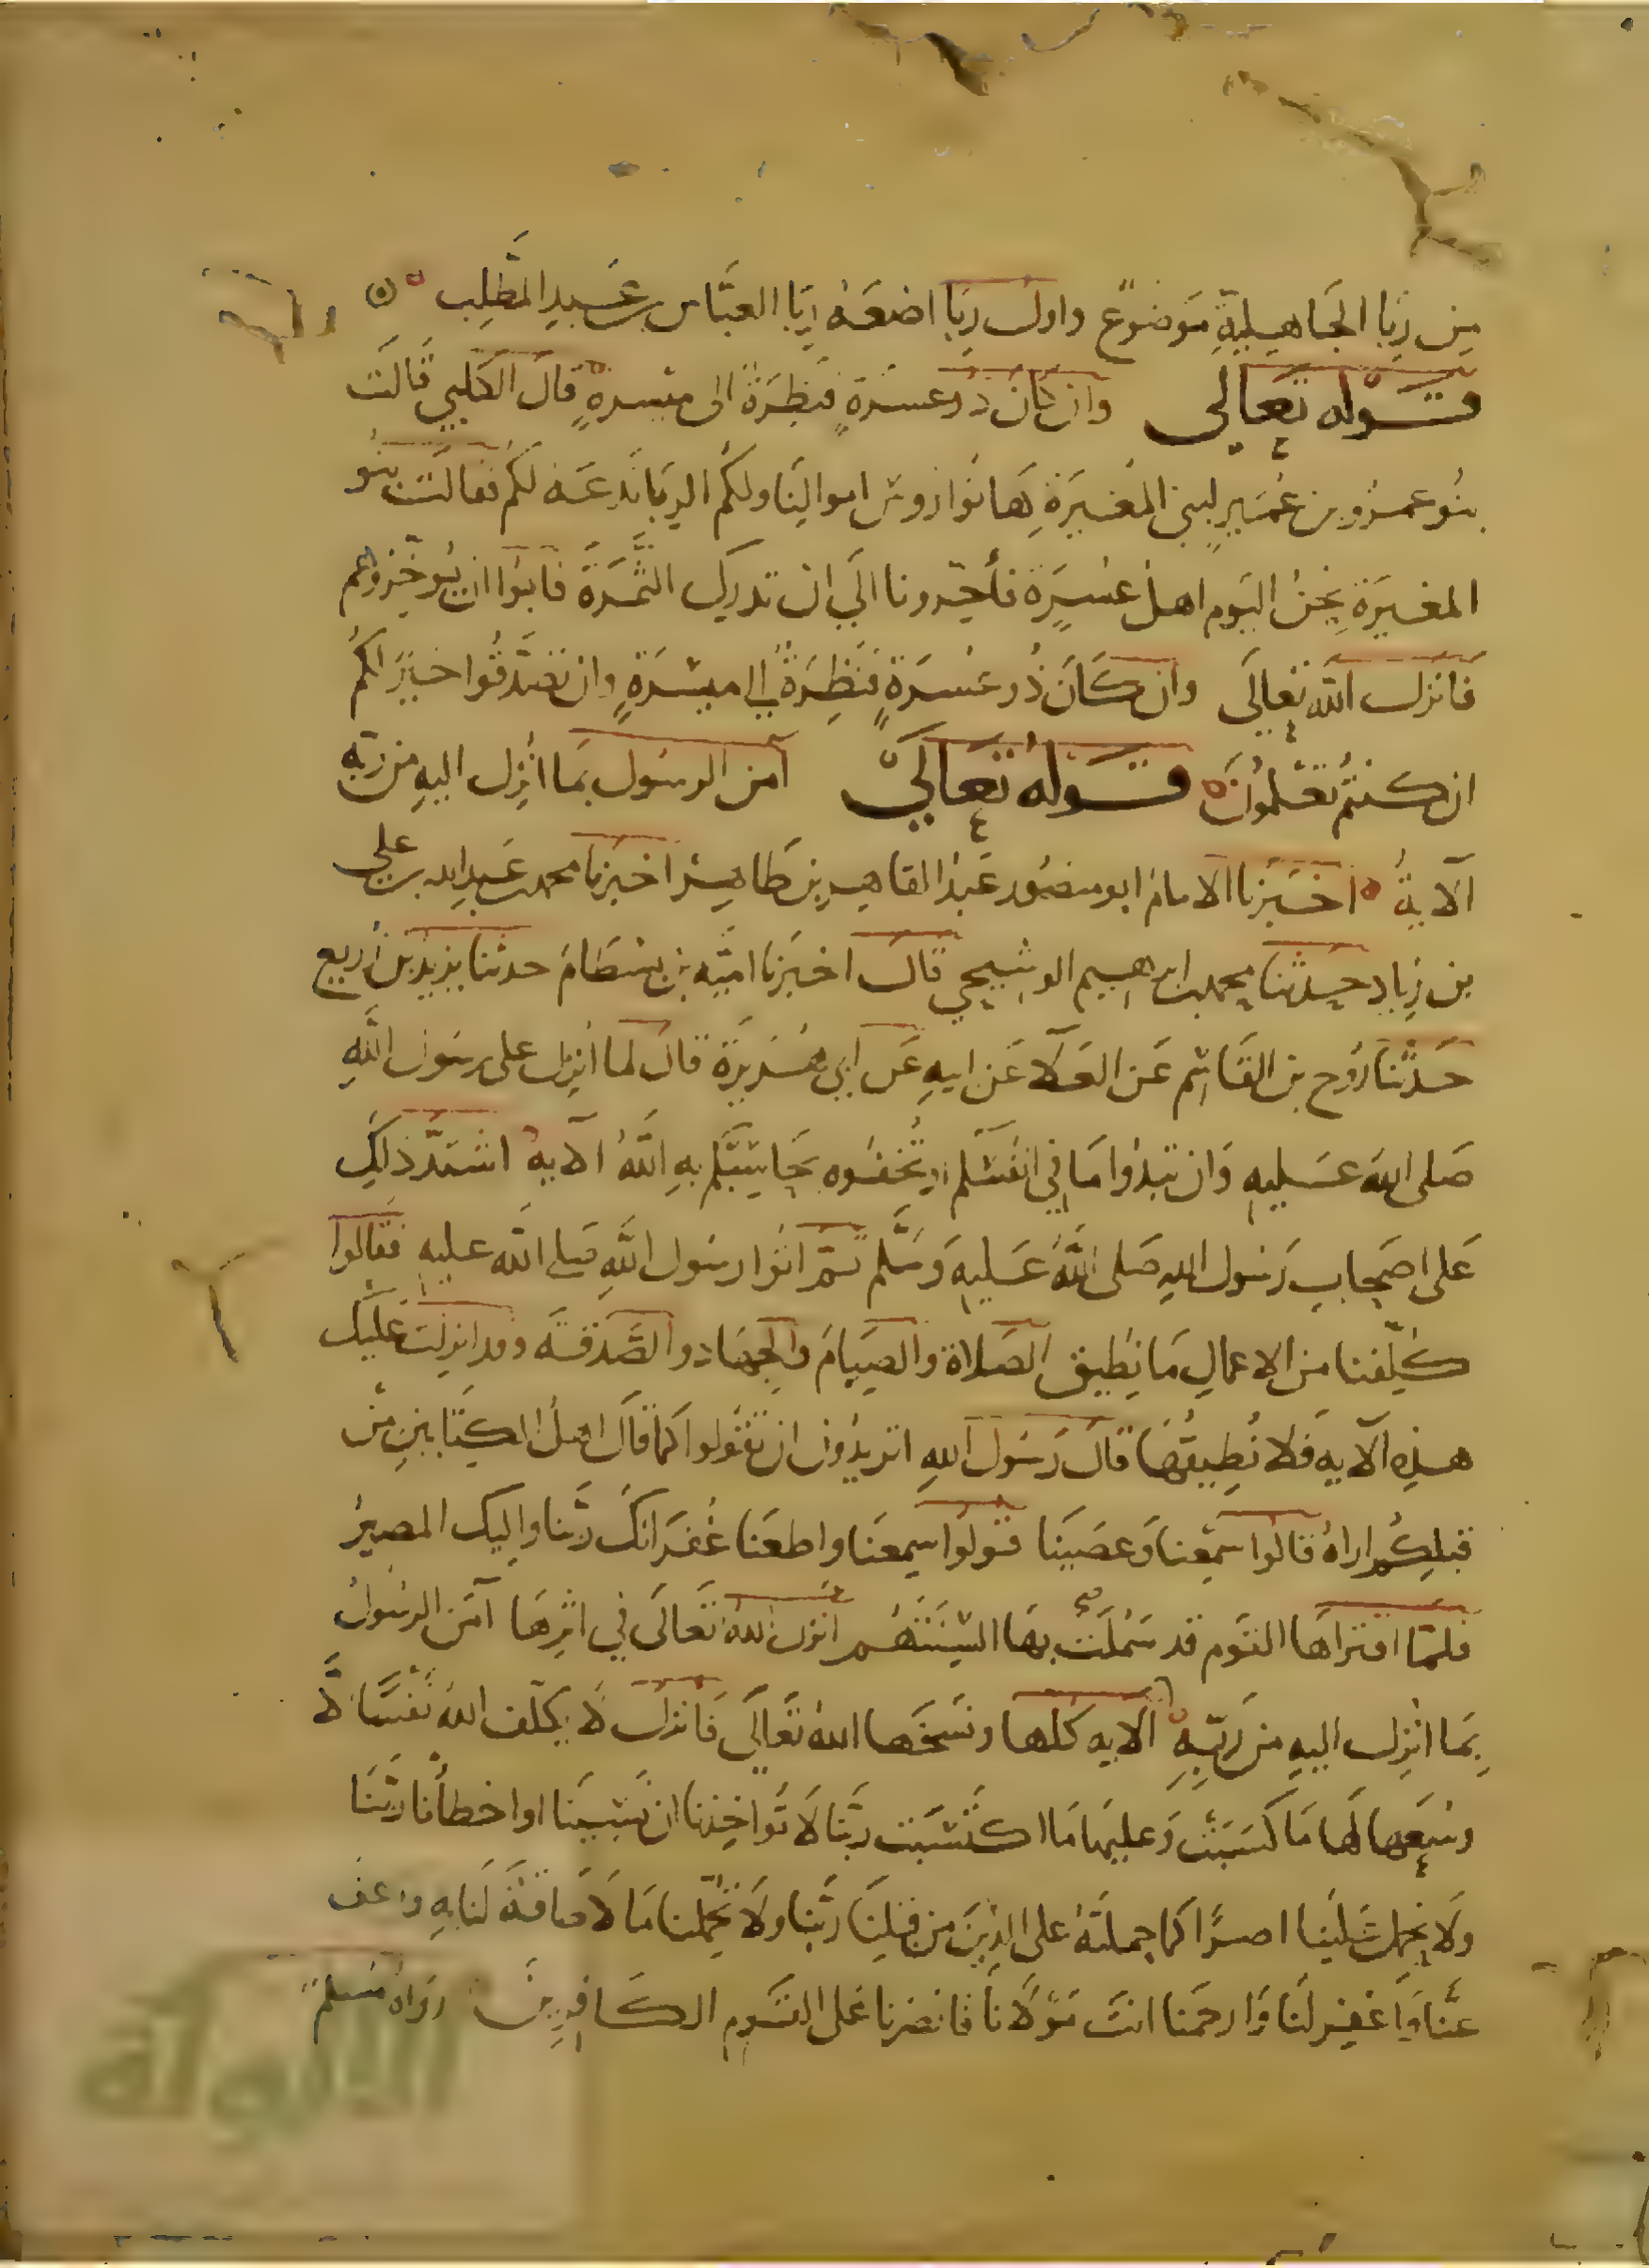 من ربا الجاهلية موضوع واول ربا اضعه ربا العباس بن عبد المطلب
قوله تعالى وان كان ذو عسرة فنظرة الى ميسرة قال الكلبي قالت
بنو عمرو بن عمير لبني المغيرة هاتوا روس اموالنا ولكم الربا ندعه لكم فقالت بنو
المغيرة نحن اليوم اهل عسرة فأخرونا الى ان تدرك الثمرة فابوا ان يؤخروهم
فانزل الله تعالى وان كان ذو عسرة فنظرة الى ميسرة وان تصدقوا خير لكم
ان كنتم تعلمون قوله تعالى آمن الرسول بما انزل اليه من ربه
الآية اخبرنا الامام ابو منصور عبد القاهر بن طاهر اخبرنا محمد بن عبد الله بن علي
بن زياد حدثنا محمد بن ابراهيم البوشنجي قال اخبرنا امية بن بسطام حدثنا يزيد بن زريع
حدثنا روح بن القاسم عن العلا عن ابيه عن ابي هريرة قال لما انزل على رسول الله
صلى الله عليه وان تبدوا ما في انفسكم او تخفوه يحاسبكم به الله الآية اشتد ذلك
على اصحاب رسول الله صلى الله عليه وسلم ثم اتوا رسول الله صلى الله عليه فقالوا
كلفنا من الاعمال ما نطيق الصلاة والصيام والجهاد والصدقة وقد انزلت عليك
هذه الآية فلا نطيقها قال رسول الله اتريدون ان تقولوا كما قال اهل الكتابين من
قبلكم اراه قالوا سمعنا وعصينا قولوا سمعنا واطعنا غفرانك ربنا واليك المصير
فلما اقتراها القوم بها السنتهم انزل الله تعالى في اثرها آمن الرسول
بما انزل اليه من ربه الآية كلها ونسخها الله تعالى فانزل لا يكلف الله نفسا الا
وسعها لها ما كسبت وعليها ما اكتسبت ربنا لا تواخذنا ان نسينا او اخطأنا ربنا
ولا تحمل علينا اصرا كما حملته على الذين من قبلنا ربنا ولا تحملنا ما لا طاقة لنا به واعف
عنا واغفر لنا وارحمنا انت مولانا فانصرنا على القوم الكافرين رواه مسلم
الألوكة